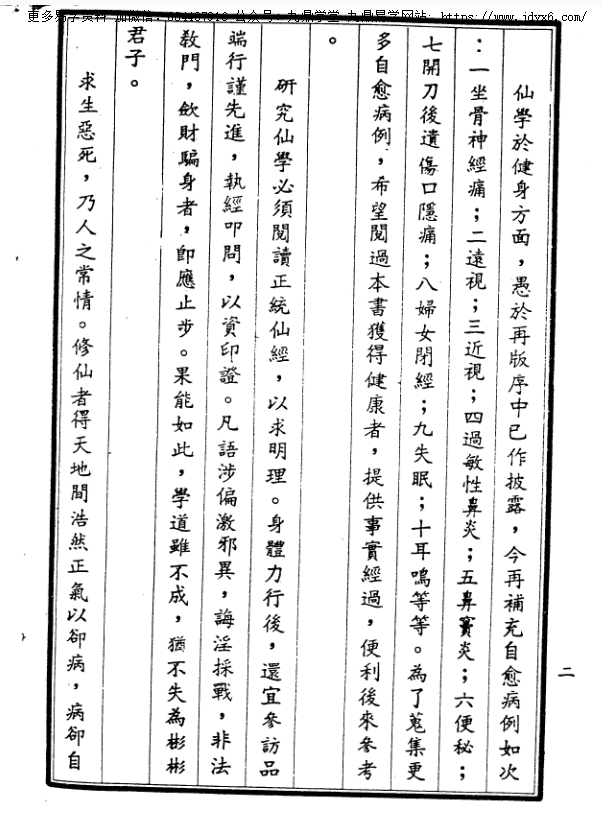 仙學於健身方面，愚於再版序中已作披露，今再補充自愈病例如次
：一坐骨神經痛；二遠視；三近視；四過敏性鼻炎；五鼻竇炎；六便秘；
七開刀後遺傷口隱痛；八婦女閉經；九失眠；十耳鳴等等。為了蒐集更
多自愈病例，希望閱過本書獲得健康者，提供事實經過，便利後來參考
。
研究仙學必須閱讀正統仙經，以求明理。身體力行後，還宜參訪品
端行謹先進，執經叩問，以資印證。凡語涉偏激邪異，誨淫採戰，非法
教門，歛財騙身者，即應止步。果能如此，學道雖不成，猶不失為彬彬
君子。
求生惡死，乃人之常情。修仙者得天地間浩然正氣以卻病，病卻自
二
九鼎易学网站: https://www.jdyx6.com/